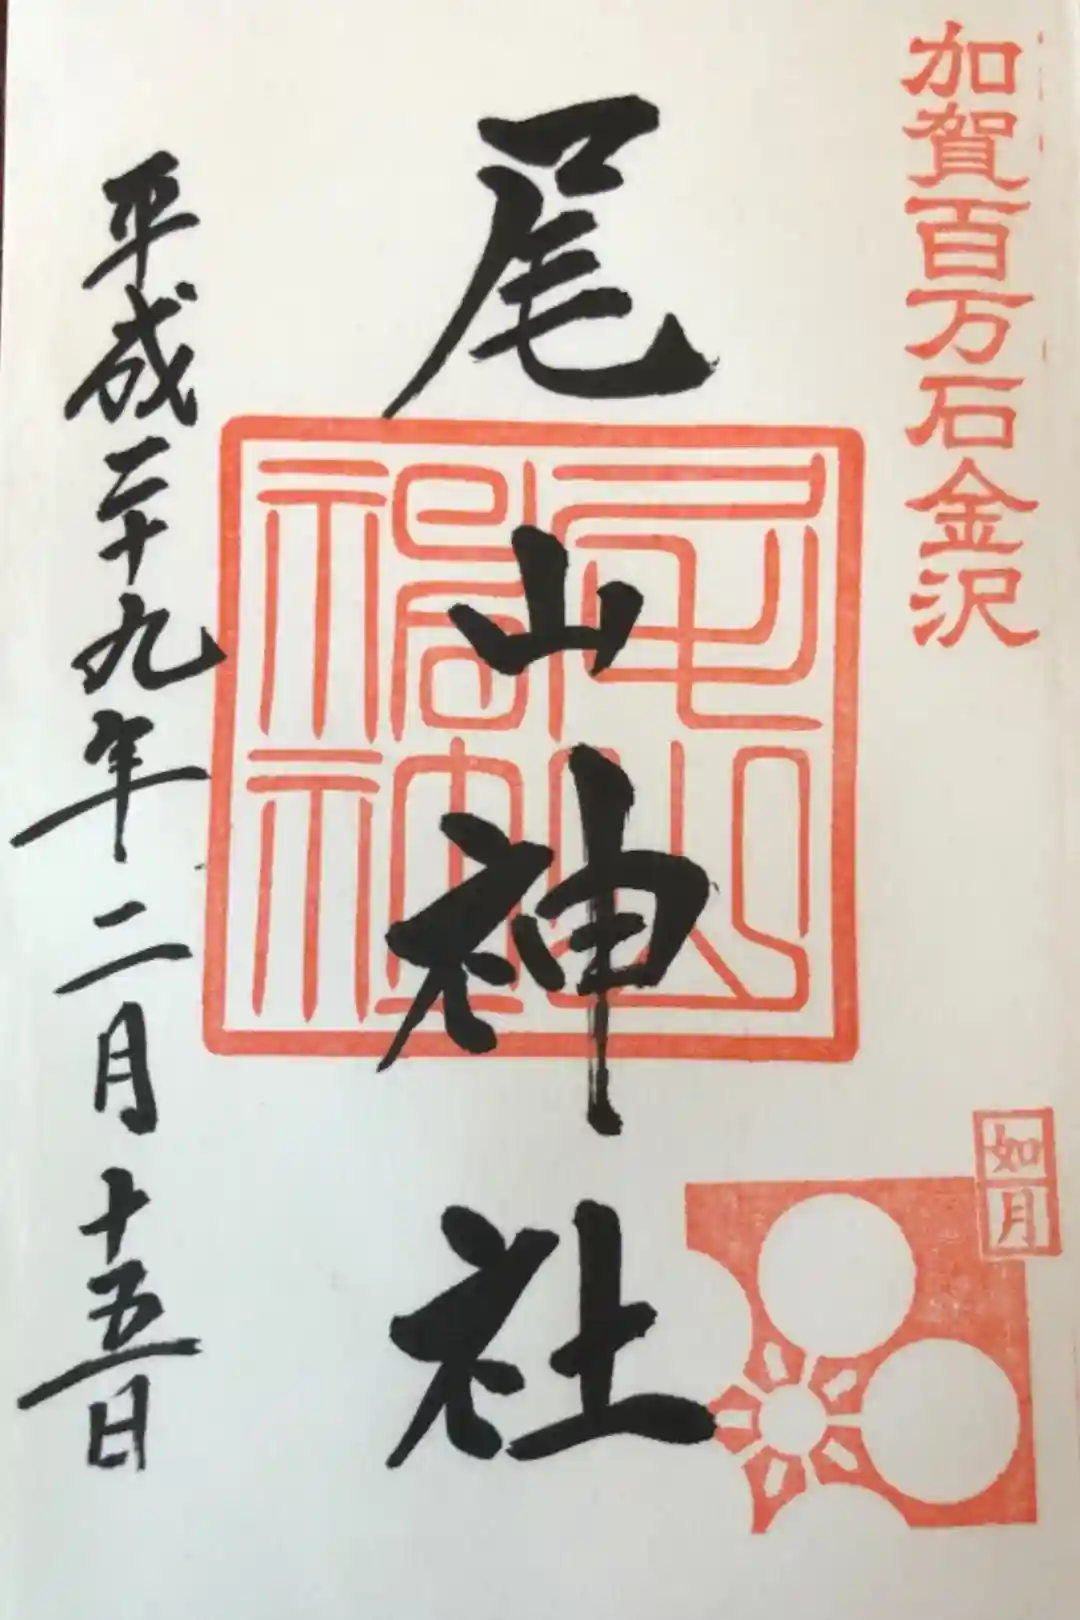 加賀百万石金沢
如月
尾山神社
平成二十九年二月十五日